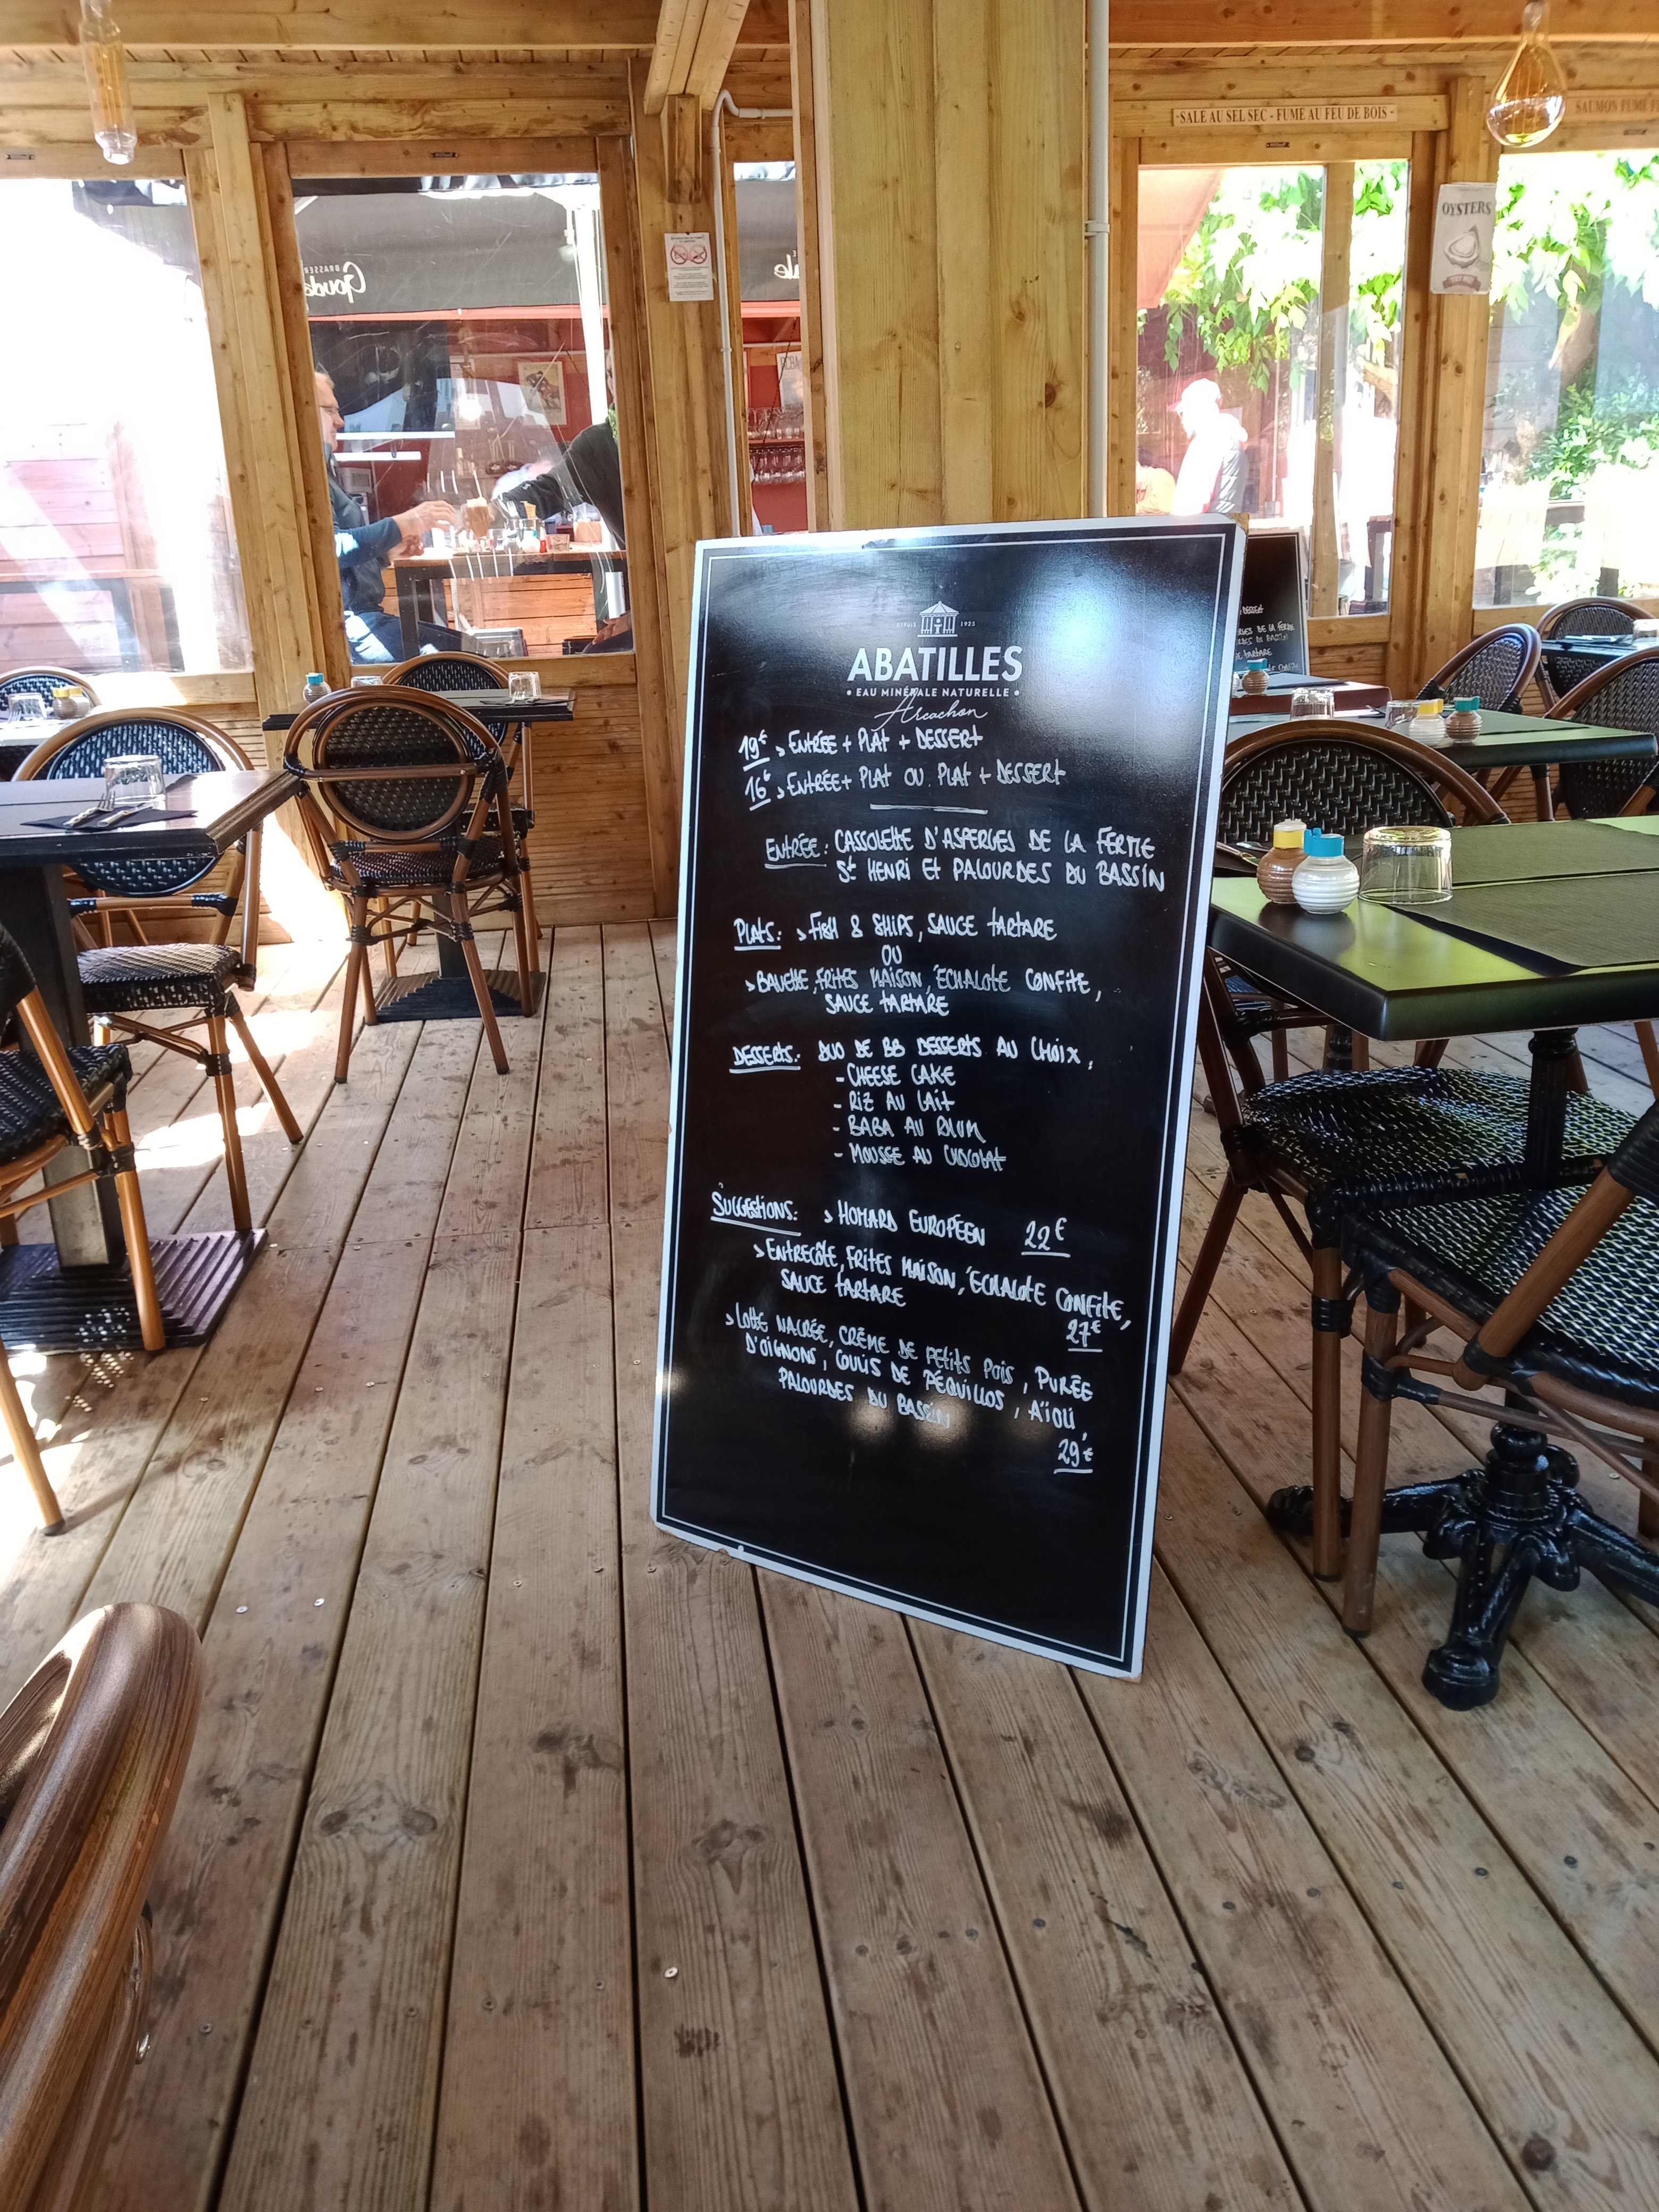 -SALE AU SEL SEC - FUME AU FEU DE BOIS-
SAUMON FUME
OYSTERS
DEPUIS 1925
ABATILLES
• EAU MINÉRALE NATURELLE •
Arcachon
19€ > ENTRÉE + PLAT + DESSERT
16€ > ENTRÉE + PLAT OU PLAT + DESSERT
ENTRÉE: CASSOLETTE D'ASPERGES DE LA FERME
St HENRI ET PALOURDES DU BASSIN
PLATS: > FISH & SHIPS, SAUCE TARTARE
OU
> BAVETTE, FRITES MAISON, ÉCHALOTE CONFITE,
SAUCE TARTARE
DESSERTS: DUO DE BB DESSERTS AU CHOIX,
- CHEESE CAKE
- RIZ AU LAIT
- BABA AU RHUM
- MOUSSE AU CHOCOLAT
SUGGESTIONS: > HOMARD EUROPÉEN 22€
> ENTRECÔTE, FRITES MAISON, ÉCHALOTE CONFITE,
SAUCE TARTARE
27€
> LOTTE NACRÉE, CRÈME DE PETITS POIS, PURÉE
D'OIGNONS, COULIS DE PÉQUILLOS, AÏOLI,
PALOURDES DU BASSIN
29€